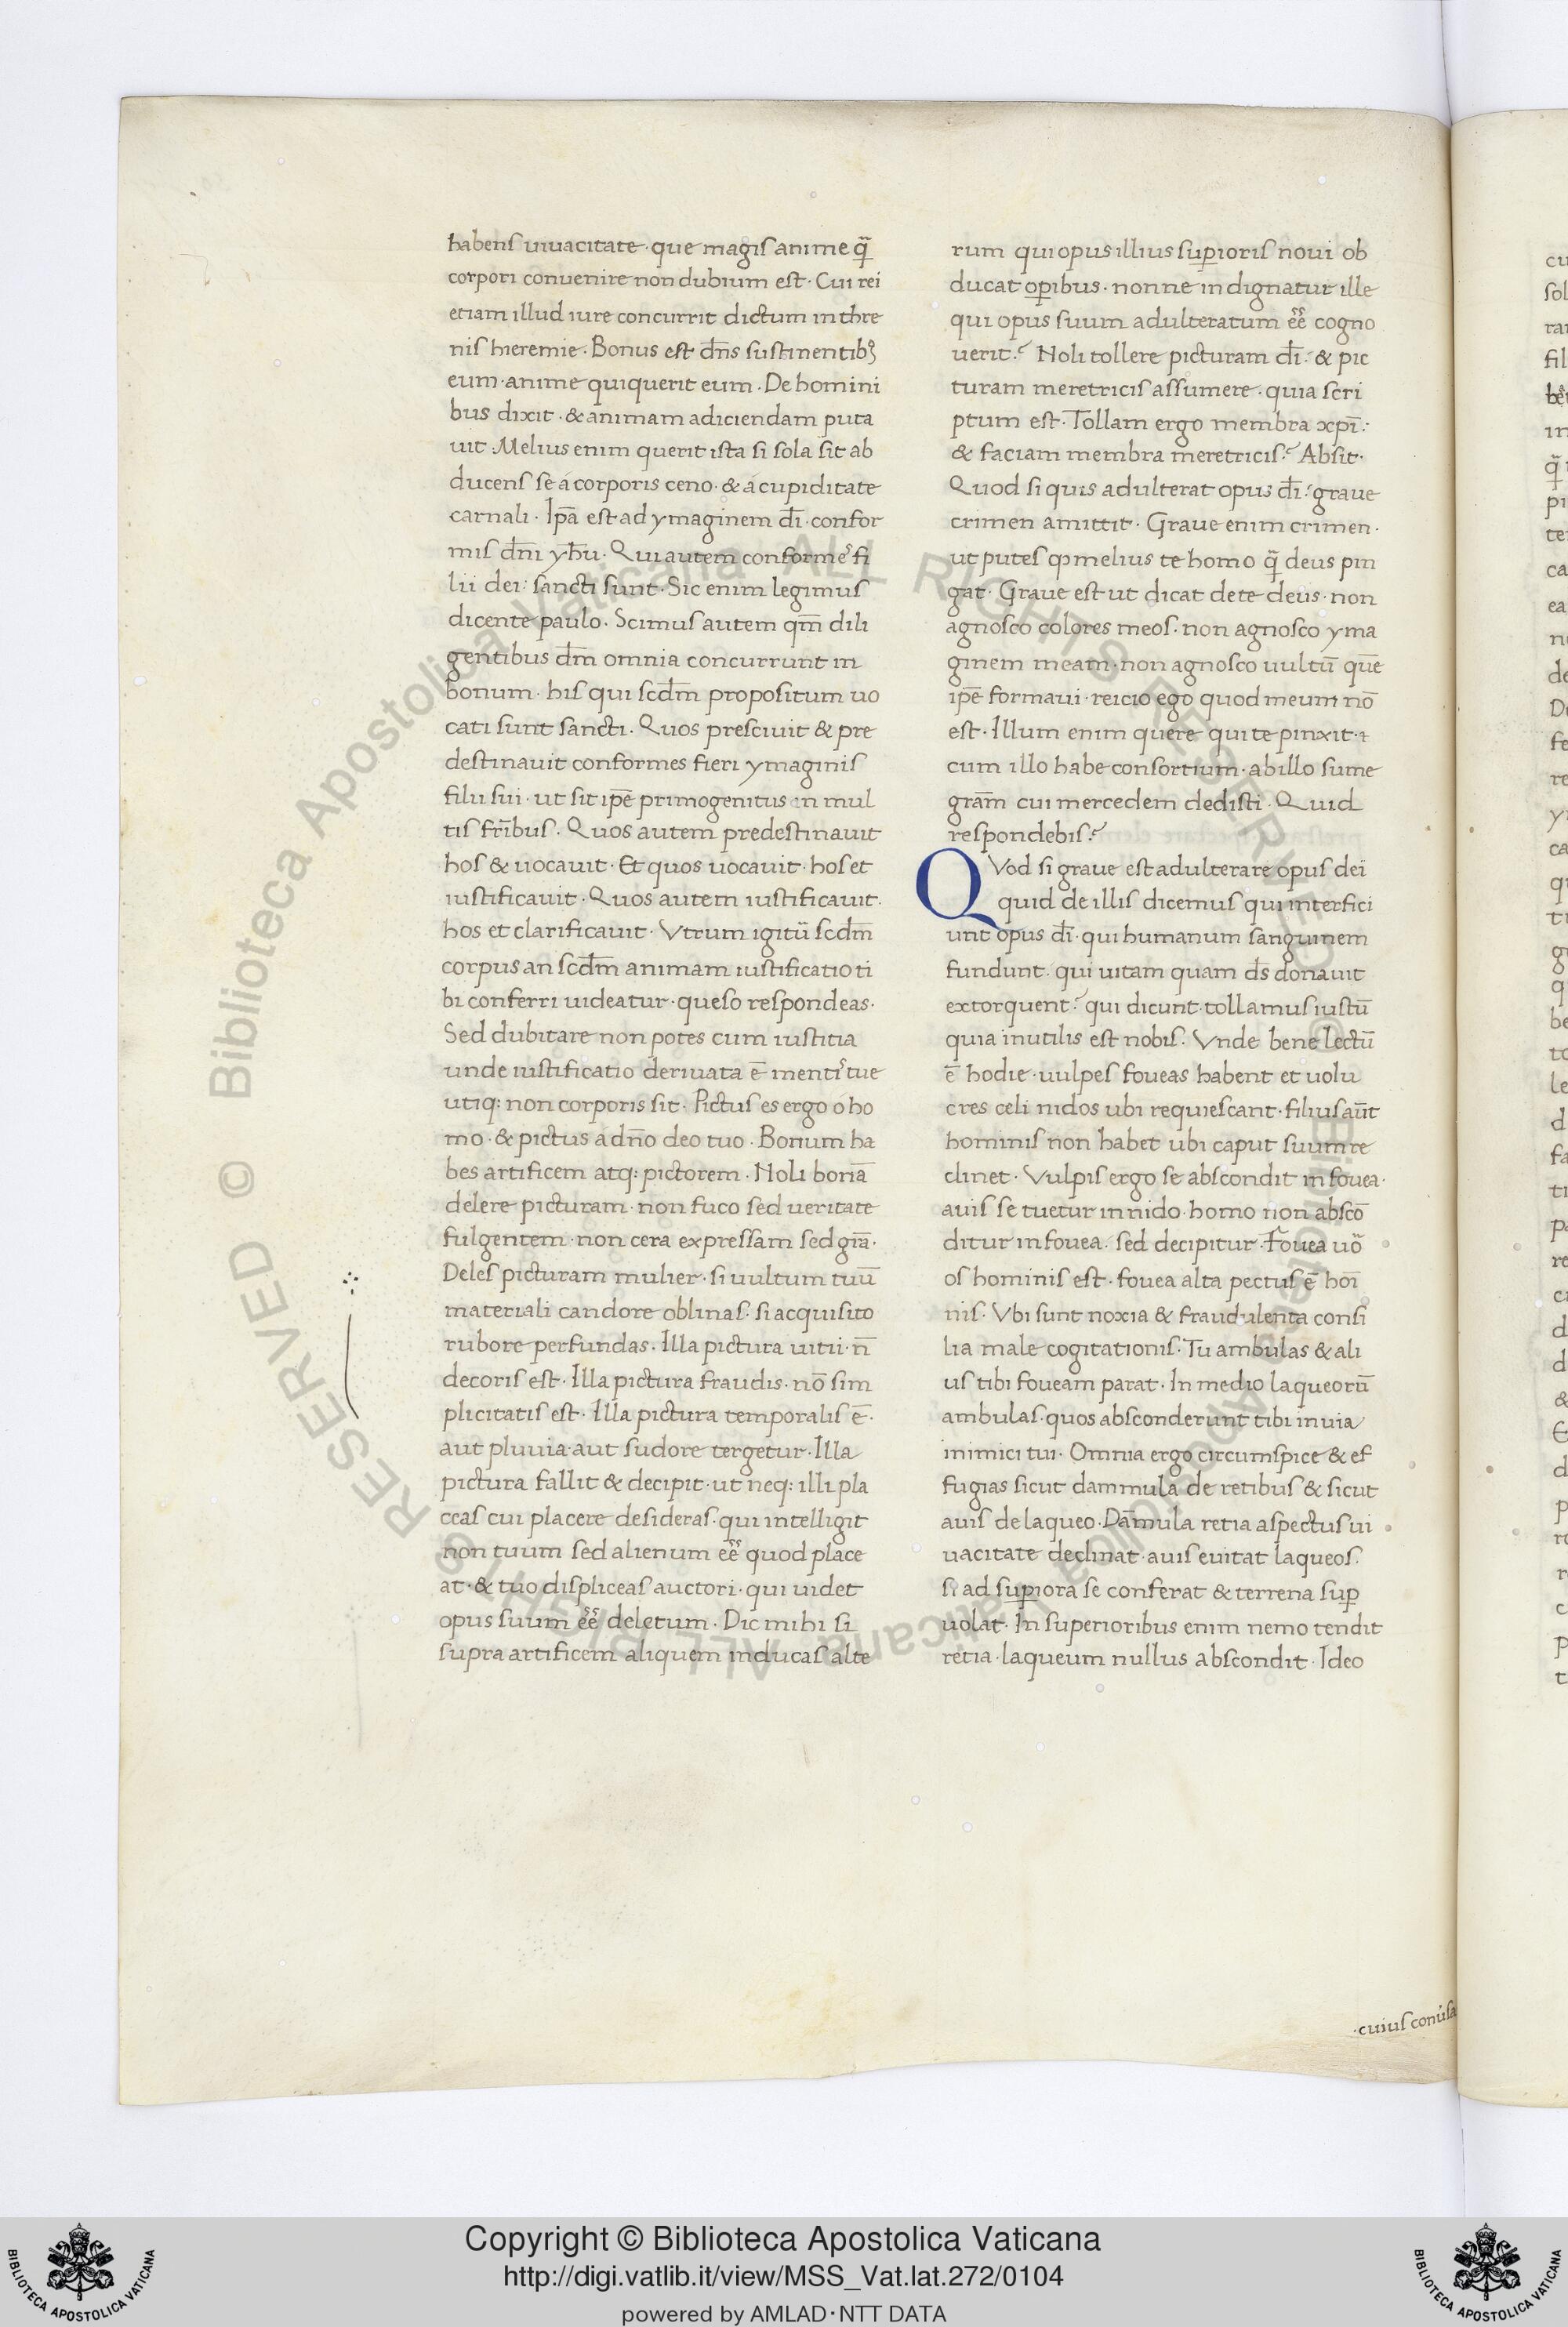 habens uiuacitate· que magis anime q̃
corpori conuenire non dubium est· Cui rei
etiam illud iure concurrit dictum in thre
nis hieremie· Bonus est dn̄s sustinentibꝰ
eum· anime qui querit eum· De homini
bus dixit· & animam adiciendam puta
uit· Melius enim querit ista si sola sit ab
ducens se á corporis ceno· & á cupiditate
carnali· Ip̄a est ad ymaginem dī· confor
mis dn̄i yh̄u· Qui autem conformeˢ fi
lii dei: sancti sunt· Sic enim legimus
dicente paulo· Scimus autem qm̄ dili
gentibus dm̄ omnia concurrunt in
bonum· his qui scdm̄ propositum uo
cati sunt sancti· Quos presciuit & pre
destinauit conformes fieri ymaginis
filii sui· ut sit ip̄e primogenitus in mul
tis fr̄ibus· Quos autem predestinauit
hos & uocauit· Et quos uocauit· hos et
iustificauit· Quos autem iustificauit·
hos et clarificauit· Vtrum igitū scdm̄
corpus an scdm̄ animam iustificatio ti
bi conferri uideatur· queso respondeas·
Sed dubitare non potes cum iustitia
unde iustificatio deriuata ē mentiˢ tue
utiq: non corporis sit· Pictus es ergo o ho
mo· & pictus á dn̄o deo tuo· Bonum ha
bes artificem atq: pictorem· Noli bonā
delere picturam· non fuco sed ueritate
fulgentem· non cera expressam sed grā·
Deles picturam mulier· si uultum tuū
materiali candore oblinas· si acquisito
rubore perfundas· Illa pictura uitii· n̄
decoris est· Illa pictura fraudis· nō sim
plicitatis est· Illa pictura temporalis ē·
aut pluuia· aut sudore tergetur· Illa
pictura fallit & decipit· ut neq: illi pla
ceas cui placere desideras· qui intelligit
non tuum sed alienum eē̃ quod place
at· & tuo displiceas auctori· qui uidet
opus suum eē̃ deletum· Dic mihi si
supra artificem aliquem inducas alte
rum qui opus illius suꝑioris noui ob
ducat oꝑibus· nonne indignatur ille
qui opus suum adulteratum eē̃ cogno
uerit? Noli tollere picturam dī: & pic
turam meretricis assumere· quia scri
ptum est· Tollam ergo membra xpī:
& faciam membra meretricis? Absit·
Quod si quis adulterat opus dī: graue
crimen amittit· Graue enim crimen·
ut putes ꝙ melius te homo q̃ deus pin
gat· Graue est ut dicat de te deus· non
agnosco colores meos· non agnosco yma
ginem meam· non agnosco uultū quē
ip̄e formaui· reicio ego quod meum nō
est· Illum enim quere qui te pinxit· ⁊
cum illo habe consortium· ab illo sume
grām cui mercedem dedisti· Quid
respondebis?
QVod si graue est adulterare opus dei
quid de illis dicemus qui interfici
unt opus dī· qui humanum sanguinem
fundunt· qui uitam quam ds̄ donauit
extorquent? qui dicunt· tollamus iustū
quia inutilis est nobis· Vnde bene lectū
ē hodie· uulpes foueas habent et uolu
cres celi nidos ubi requiescant· filius aūt
hominis non habet ubi caput suum re
clinet· Vulpis ergo se abscondit in fouea·
auis se tuetur in nido· homo non abscō
ditur in fouea· sed decipitur· Fouea uō
os hominis est· fouea alta pectus ē hoī
nis· Vbi sunt noxia & fraudulenta consi
lia male cogitationis· Tu ambulas & ali
us tibi foueam parat· In medio laqueorū
ambulas· quos absconderunt tibi in uia
inimici tui· Omnia ergo circumspice & ef
fugias sicut dammula de retibus & sicut
auis de laqueo· Dām̄ula retia aspectus ui
uacitate declinat· auis euitat laqueos·
si ad suꝑiora se conferat & terrena suꝑ
uolat· In superioribus enim nemo tendit
retia· laqueum nullus abscondit· Ideo
·cuius conu̓sa
© Biblioteca Apostolica Vaticana ALL RIGHTS RESERVED
© Biblioteca Apostolica Vaticana ALL RIGHTS RESERVED
Copyright © Biblioteca Apostolica Vaticana
http://digi.vatlib.it/view/MSS_Vat.lat.272/0104
powered by AMLAD·NTT DATA
BIBLIOTECA APOSTOLICA VATICANA
BIBLIOTECA APOSTOLICA VATICANA